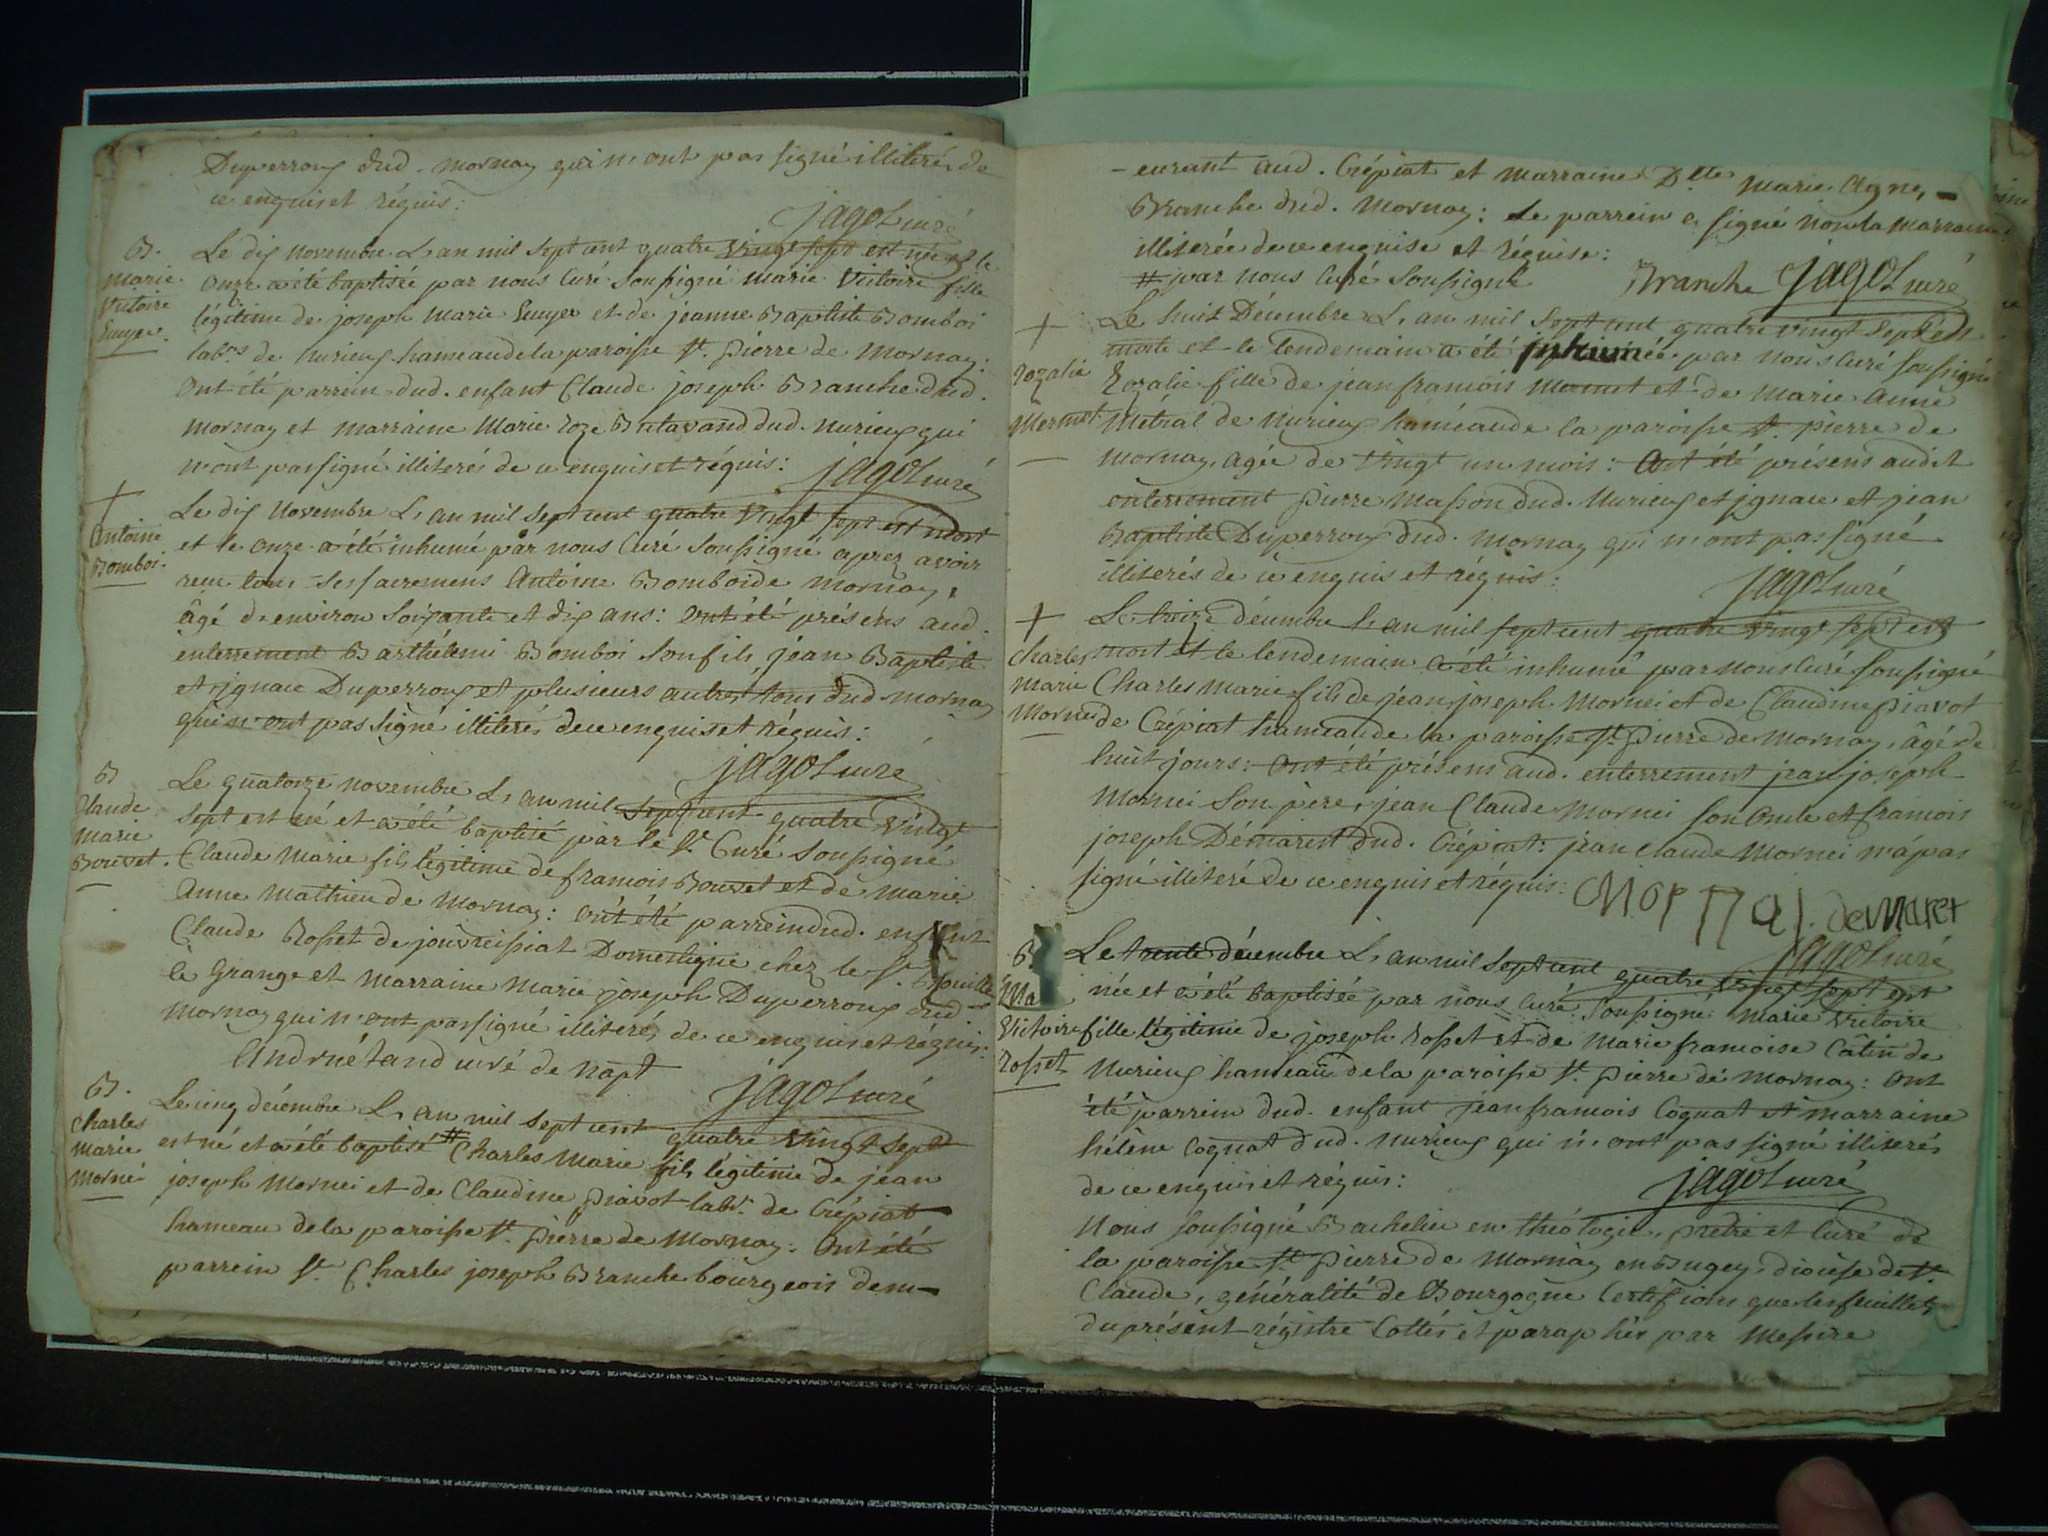 Duperroux dud. mornay qui n'ont pas signé illiterés de
ce enquis et réquis:
jagot curé
B.
marie
victoire
Emyer.
Le dix novembre L'an mil sept cent quatre vingt sept est née et le
onze a été baptisée par nous Curé soussigné marie victoire fille
légitime de joseph marie Emyer et de jeanne Baptiste Bomboi
labrs de nurieux hameau de la paroisse St. pierre de mornay.
ont été parrein dud. enfant Claude joseph Branche dud.
mornay et marraine Marie roze Balavand dud. nurieux qui
n'ont pas signé illiterés de ce enquis et réquis:
jagot curé
+
Antoine
Bomboi.
Le dix novembre L'an mil sept cent quatre vingt sept est mort
et le onze a été inhumé par nous Curé soussigné aprez avoir
reçu tous ses sacremens Antoine Bomboi de mornay,
âgé d'environ soixante et dix ans: ont été présens aud.
enterrement Barthélemi Bomboi son fils, jean Baptiste
et ignace Duperroux et plusieurs autres tous dud mornay
qui n'ont pas signé illiterés de ce enquis et réquis:
jagot curé
B
Claude
marie
Bouvet.
Le quatorze novembre L'an mil sept cent quatre vingt
sept est né et a été baptisé par le Sr. Curé soussigné
Claude Marie fils légitime de francois Bouvet et de marie
Anne Mathieu de mornay: ont été parrein dud. enfant
Claude Rosset de jouvreissiat Domestique chez le Sr.
la Grange et marraine marie joseph Duperroux dud
mornay qui n'ont pas signé illiterés de ce enquis et réquis:
Andruétand curé de napt
jagot curé
B.
Charles
marie
morné
Le cinq décembre L'an mil sept cent quatre vingt sept
est né et a été baptisé # Charles Marie fils légitime de jean
joseph Mornei et de Claudine piavot labr. de Crépiat
hameau de la paroisse St. pierre de Mornay: ont été
parrein Sr. Charles joseph Branche bourgeois dem-
-eurant aud. Crépiat et marraine Dlle marie Agnes
Branche dud. mornay: le parrein a signé non la marraine
illiterée de ce enquise et réquise:
# par nous Curé soussigné
Branche jagot curé
+
rozalie
Mermet
Le huit Décembre L'an mil sept cent quatre vingt sept est
morte et le lendemain a été inhumée par nous curé soussigné
Rozalie fille de jean francois Mermet et de marie Anne
Métral de nurieux haméau de la paroisse St. pierre de
mornay, agée de vingt un mois: ont été présens audit
enterrement pierre masson dud. nurieux et ignace et jean
Baptiste Duperroux dud. mornay qui n'ont pas signé
illiterés de ce enquis et réquis:
jagot curé
+
Charles
marie
Mornei
Le treize décembre L'an mil sept cent quatre vingt sept est
mort et le lendemain a été inhumé par nous curé soussigné
Charles marie fils de jean joseph Mornei et de Claudine piavot
de Crépiat hameau de la paroisse St. pierre de mornay, âgé de
huit jours: ont été présens aud. enterrement jean joseph
Mornei son père, jean Claude Mornei son oncle et francois
joseph Démarest dud. Crépiat: jean claude Mornei n'a pas
signé illiteré de ce enquis et réquis:
demaret
jagot curé
B
Ma
victoire
rosset
Le trente décembre L'an mil sept cent quatre vingt sept est
née et a été baptisée par nous curé soussigné marie victoire
fille légitime de joseph rosset et de marie francoise Câtin de
nurieux hameau de la paroisse St. pierre de mornay: ont
été parrein dud. enfant jean francois Cognat et marraine
hélène Cognat dud. nurieux qui n'ont pas signé illiterés
de ce enquis et réquis:
jagot curé
Nous soussigné Bachelier en théologie, prêtre et curé de
la paroisse St. pierre de mornay en Bugey, diocèse de St.
Claude, généralité de Bourgogne Certifions que les feuillets
du présent régistre Cottés et paraphés par Messire